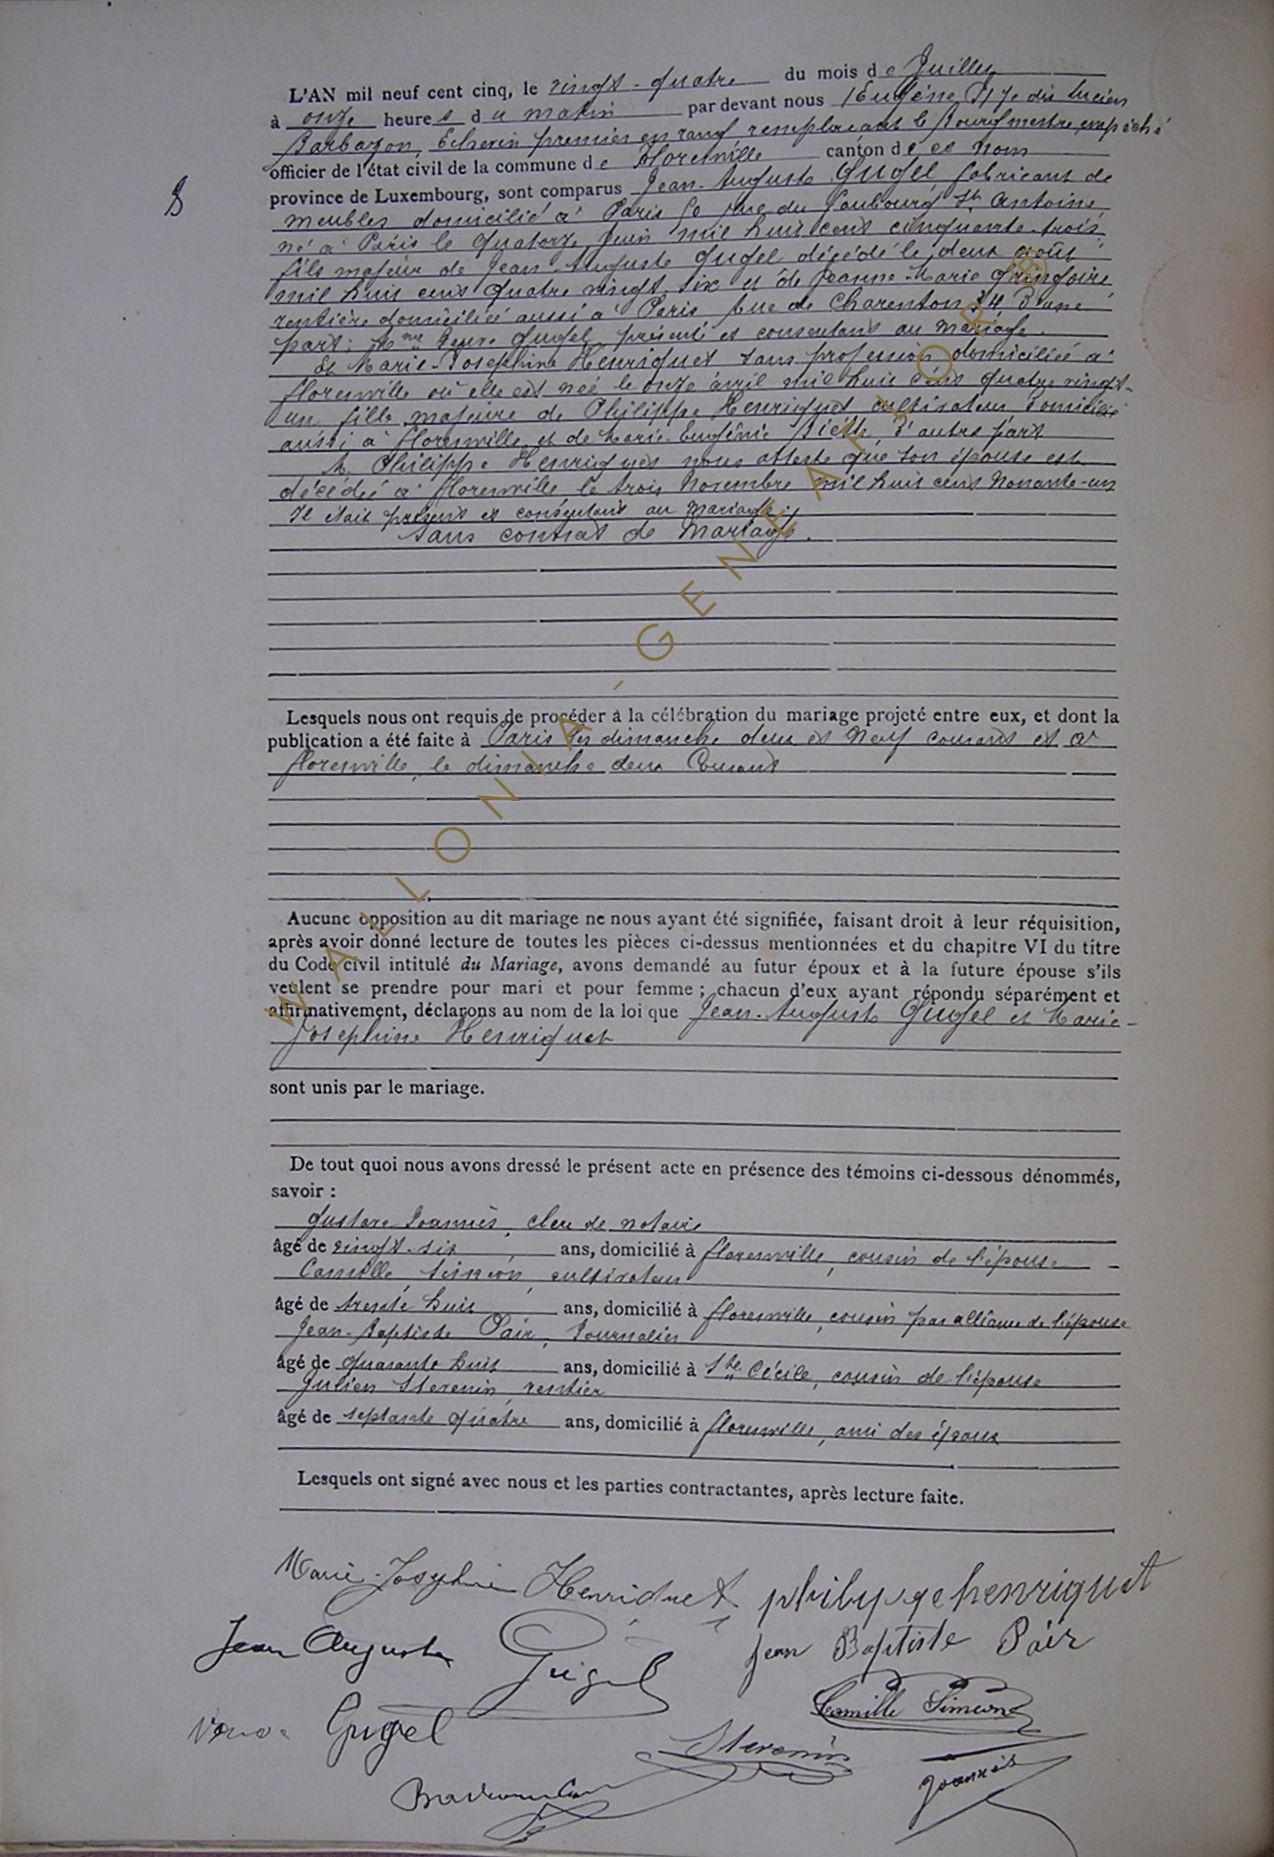 L'AN mil neuf cent cinq, le vingt-quatre du mois de Juillet
à onze heures du matin par devant nous Eugène dit Lucien
Barbazon, Echevin premier en rang remplacant le Bourgmestre empêché
officier de l'état civil de la commune de Florenville canton de ce nom
8
province de Luxembourg, sont comparus Jean-Auguste Gugel fabricant de
meubles domicilié à Paris 50 rue du Faubourg St Antoine
né à Paris le quatorze Juin mil huit cent cinquante-trois
fils majeur de Jean-Auguste Gugel décédé le deux août
mil huit cent quatre vingt six et de Jeanne-Marie Gringoire
rentière domiciliée aussi à Paris rue de Charenton 34 D'une
part; Mme Veuve Gugel, présente et consentant au mariage.
Et Marie-Josephine Henriquet sans profession domiciliée à
Florenville où elle est née le onze avril mil huit cent quatre vingt-
un fille majeure de Philippe Henriquet cultivateur domicilié
aussi à Florenville et de Marie-Eugénie d'autre part
M. Philippe Henriquet nous atteste que son épouse est
décédée à Florenville le trois Novembre mil huit cent Nonante-un
Il était présent et consentant au mariage.
Sans contrat de Mariage.
Lesquels nous ont requis de procéder à la célébration du mariage projeté entre eux, et dont la
publication a été faite à Paris les dimanche deux et Neuf courant et à
Florenville, le dimanche deux Courant
Aucune opposition au dit mariage ne nous ayant été signifiée, faisant droit à leur réquisition,
après avoir donné lecture de toutes les pièces ci-dessus mentionnées et du chapitre VI du titre
du Code civil intitulé du Mariage, avons demandé au futur époux et à la future épouse s'ils
veulent se prendre pour mari et pour femme ; chacun d'eux ayant répondu séparément et
affirmativement, déclarons au nom de la loi que Jean-Auguste Gugel et Marie-
Josephine Henriquet
sont unis par le mariage.
De tout quoi nous avons dressé le présent acte en présence des témoins ci-dessous dénommés,
savoir :
Gustave Joannès, clerc de notaire
âgé de vingt-six ans, domicilié à Florenville, cousin de l'épouse
Camille Siméon, cultivateur
âgé de trente huit ans, domicilié à Florenville, cousin par alliance de l'épouse
Jean-Baptiste Pair, Journalier
âgé de quarante huit ans, domicilié à Ste Cécile, cousin de l'épouse
Julien Stevenin, rentier
âgé de septante quatre ans, domicilié à Florenville, ami des époux
Lesquels ont signé avec nous et les parties contractantes, après lecture faite.
Marie-Josephine Henriquet philippe henriquet
Jean Auguste Gugel Jean Baptiste Pair
Camille Simeon
veuve Gugel
Stevenin Joannès
WALLONIA-GENEAFLOR